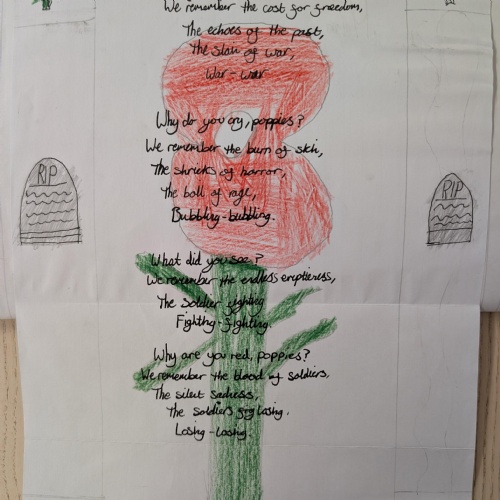 We remember the cost for freedom,
The echoes of the past,
The slam of war,
War-war
Why do you cry, poppies?
We remember the burn of skin,
The shrieks of horror,
The boll of rage,
Bubbling-bubbling.
RIP
RIP
What did you see?
We remember the endless emptieness,
The Soldier fighting
Fighting-fighting.
Why are you red, poppies?
We remember the blood of soldiers,
The silent sadness,
The soldiers losing.
Losing-losing.